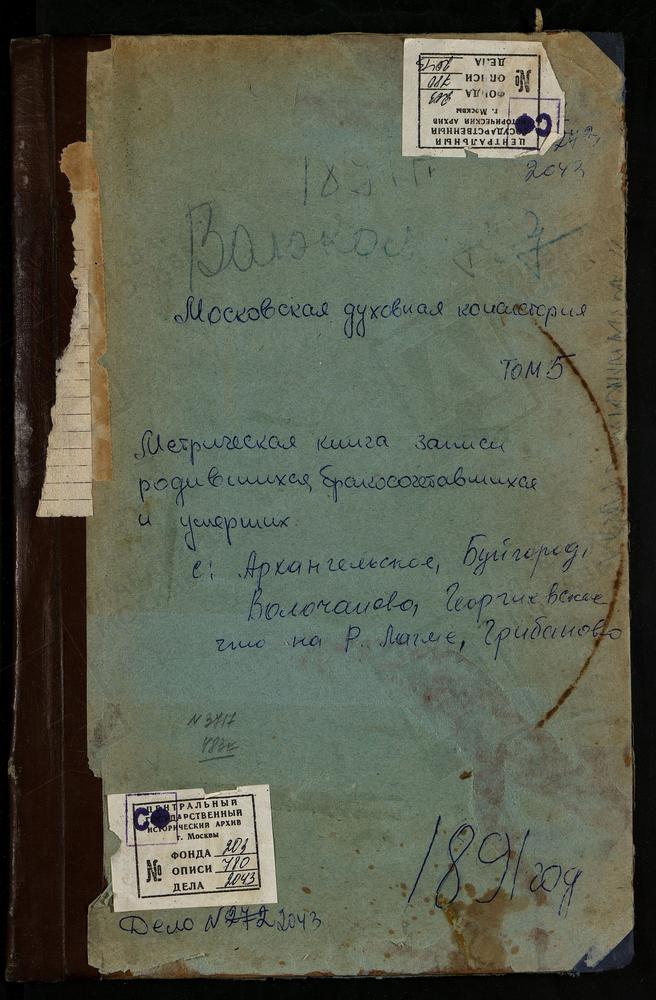 ЦЕНТРАЛЬНЫЙ
ГОСУДАРСТВЕННЫЙ
ИСТОРИЧЕСКИЙ АРХИВ
г. Москвы
№
ФОНДА 203
ОПИСИ 780
ДЕЛА 2043
2043
Московская духовная консистория
Том 5
Метрическая книга записи
родившихся, бракосочетавшихся
и умерших
с: Архангельское, Буйгород,
Волочаново, Георгиевское
что на р. Ламе, Грибаново
N 3717
ЦЕНТРАЛЬНЫЙ
ГОСУДАРСТВЕННЫЙ
ИСТОРИЧЕСКИЙ АРХИВ
г. Москвы
№
ФОНДА 203
ОПИСИ 780
ДЕЛА 2043
1891 год
Дело N 272 2043